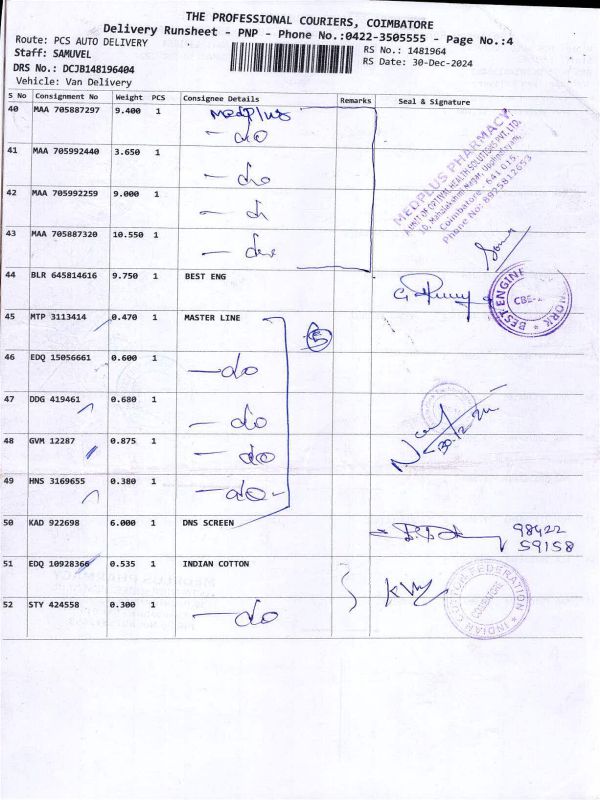 THE PROFESSIONAL COURIERS, COIMBATORE
Delivery Runsheet - PNP - Phone No.:0422-3505555 - Page No.:4
Route: PCS AUTO DELIVERY
RS No.: 1481964
Staff: SAMUVEL
RS Date: 30-Dec-2024
DRS No.: DCJB148196404
Vehicle: Van Delivery
S No Consignment No Weight PCS Consignee Details Remarks Seal & Signature
40 MAA 705887297 9.400 1 Medplus
-do
41 MAA 705992440 3.650 1 -do
42 MAA 705992259 9.000 1
43 MAA 705887320 10.550 1
MEDPLUS PHARMACY
A UNIT OF OPTIVAL HEALTH SOLUTIONS PVT. LTD.
10, Mahalakshmi Nagar, Upplilipalayam,
Coimbatore - 641 015.
Phone No: 8925812653
44 BLR 645814616 9.750 1 BEST ENG
BEST ENGINE WORK
CBE-
45 MTP 3113414 0.470 1 MASTER LINE
5
46 EDQ 15056661 0.600 1 -do
47 DDG 419461 0.680 1 -do
48 GVM 12287 0.875 1 -do
30.12.24
49 HNS 3169655 0.380 1 -do-
50 KAD 922698 6.000 1 DNS SCREEN
98422
59158
51 EDQ 10928366 0.535 1 INDIAN COTTON
52 STY 424558 0.300 1 -do
INDIAN COTTON FEDERATION
COIMBATORE